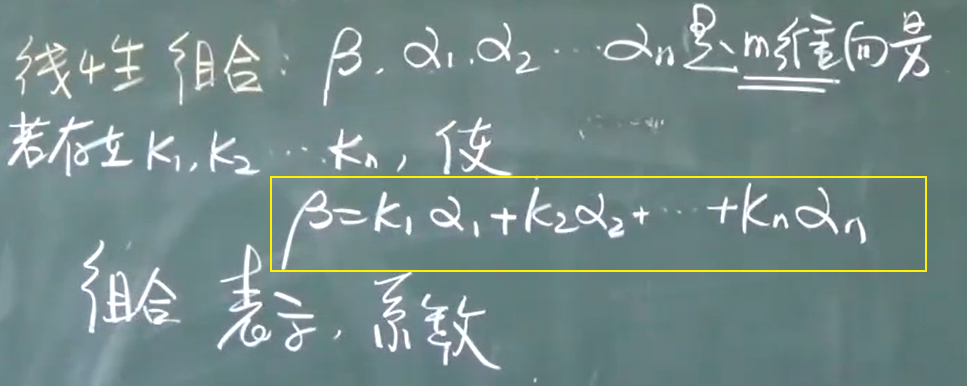 线性组合: β, α₁, α₂ ⋯ αₙ是m维向量
若存在 k₁, k₂ ⋯ kₙ, 使
β=k₁α₁+k₂α₂+⋯+kₙαₙ
组合 表示, 系数